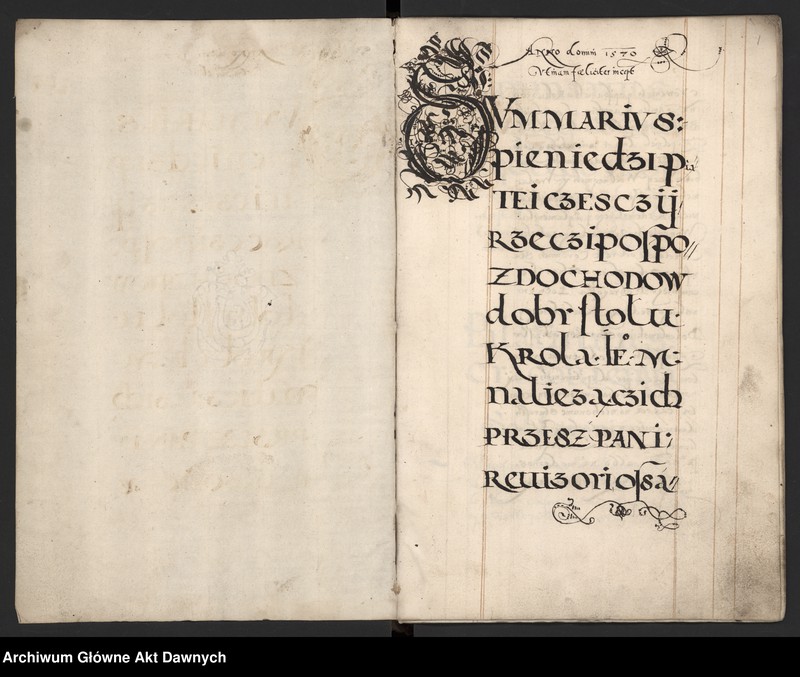 Anno domini 1570
Utinam foeliciter
1
SVMMARIVS:
pieniędzi pia
TEI CZESCZij
RZECZiposPo//
Z DOCHODOW
dobr stolu
KROLA·IEo·M·
należączich
PRZESZ PANi:
Reuizori ossa//
Archiwum Główne Akt Dawnych